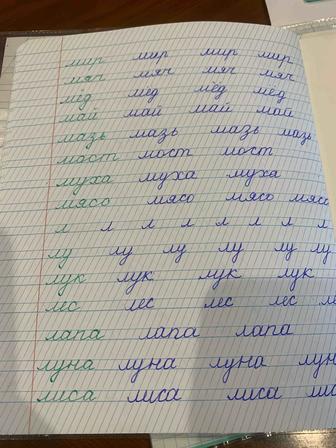 мир мир мир мир
мяч мяч мяч мяч
мёд мёд мёд мёд
май май май май
мазь мазь мазь мазь
мост мост мост
муха муха муха
мясо мясо мясо мясо
л л л л л л л
лу лу лу лу лу лу
лук лук лук лук
лес лес лес лес ле
лапа лапа лапа
луна луна луна лун
лиса лиса лиса лис